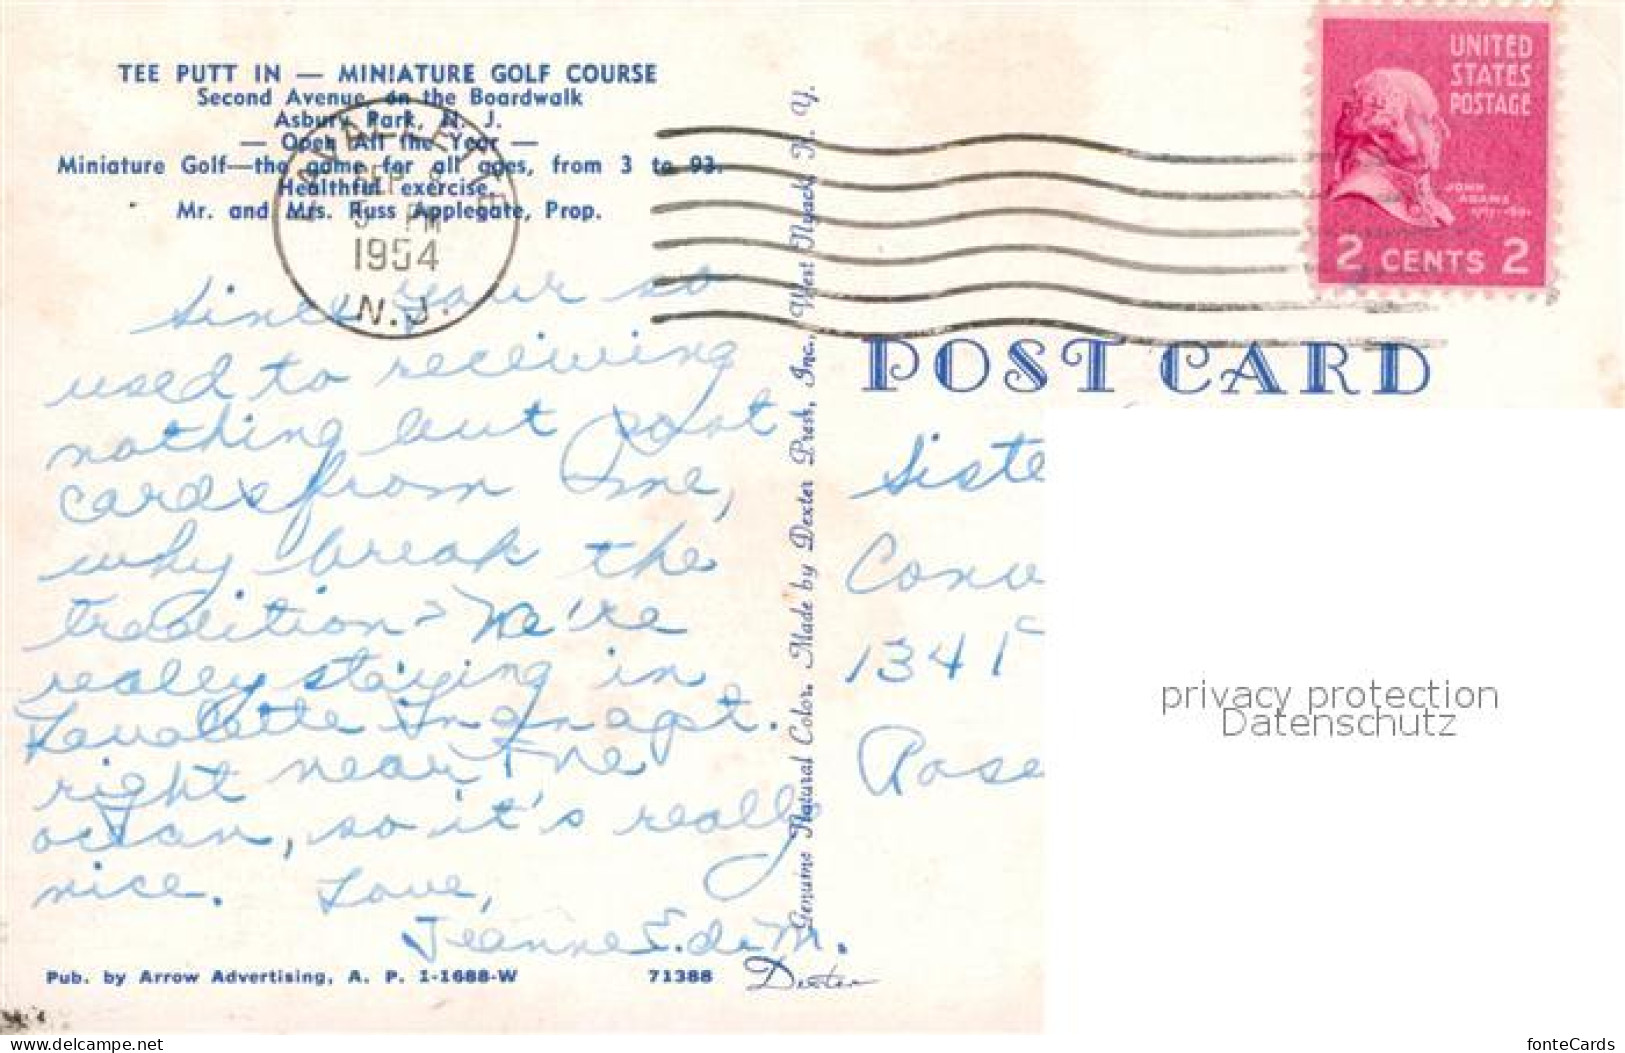 TEE PUTT IN — MINIATURE GOLF COURSE
Second Avenue, on the Boardwalk
Asbury Park, N. J.
— Open All the Year —
Miniature Golf—the game for all ages, from 3 to 93.
Healthful exercise.
Mr. and Mrs. Russ Applegate, Prop.
5 PM
1954
N.J.
Since your so
used to receiving
nothing but post
cards from me,
why break the
tradition? We're
really staying in
Lavalette in an apt.
right near the
ocean, so it's really
nice. Love,
Jeanne E. de M.
Pub. by Arrow Advertising, A. P. I-1688-W
71388
Dexter
Genuine Natural Color. Made by Dexter Press, Inc., West Nyack, N. Y.
UNITED
STATES
POSTAGE
JOHN
ADAMS
2 CENTS 2
POST CARD
Siste
Conv
1341
Rose
privacy protection
Datenschutz
www.delcampe.net
fonteCards